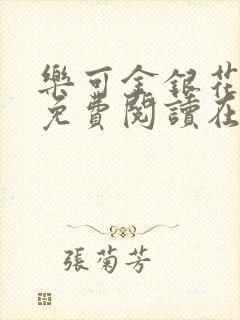 樂可金銀花
免費閱讀在
張菊芳